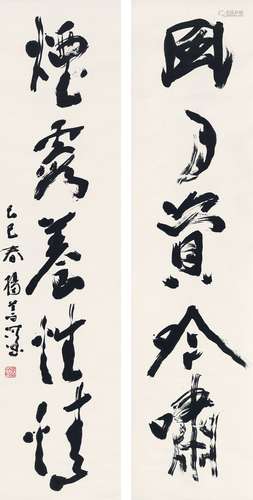 風月資吟嘯
煙霞養性情
己巳春 楊善深